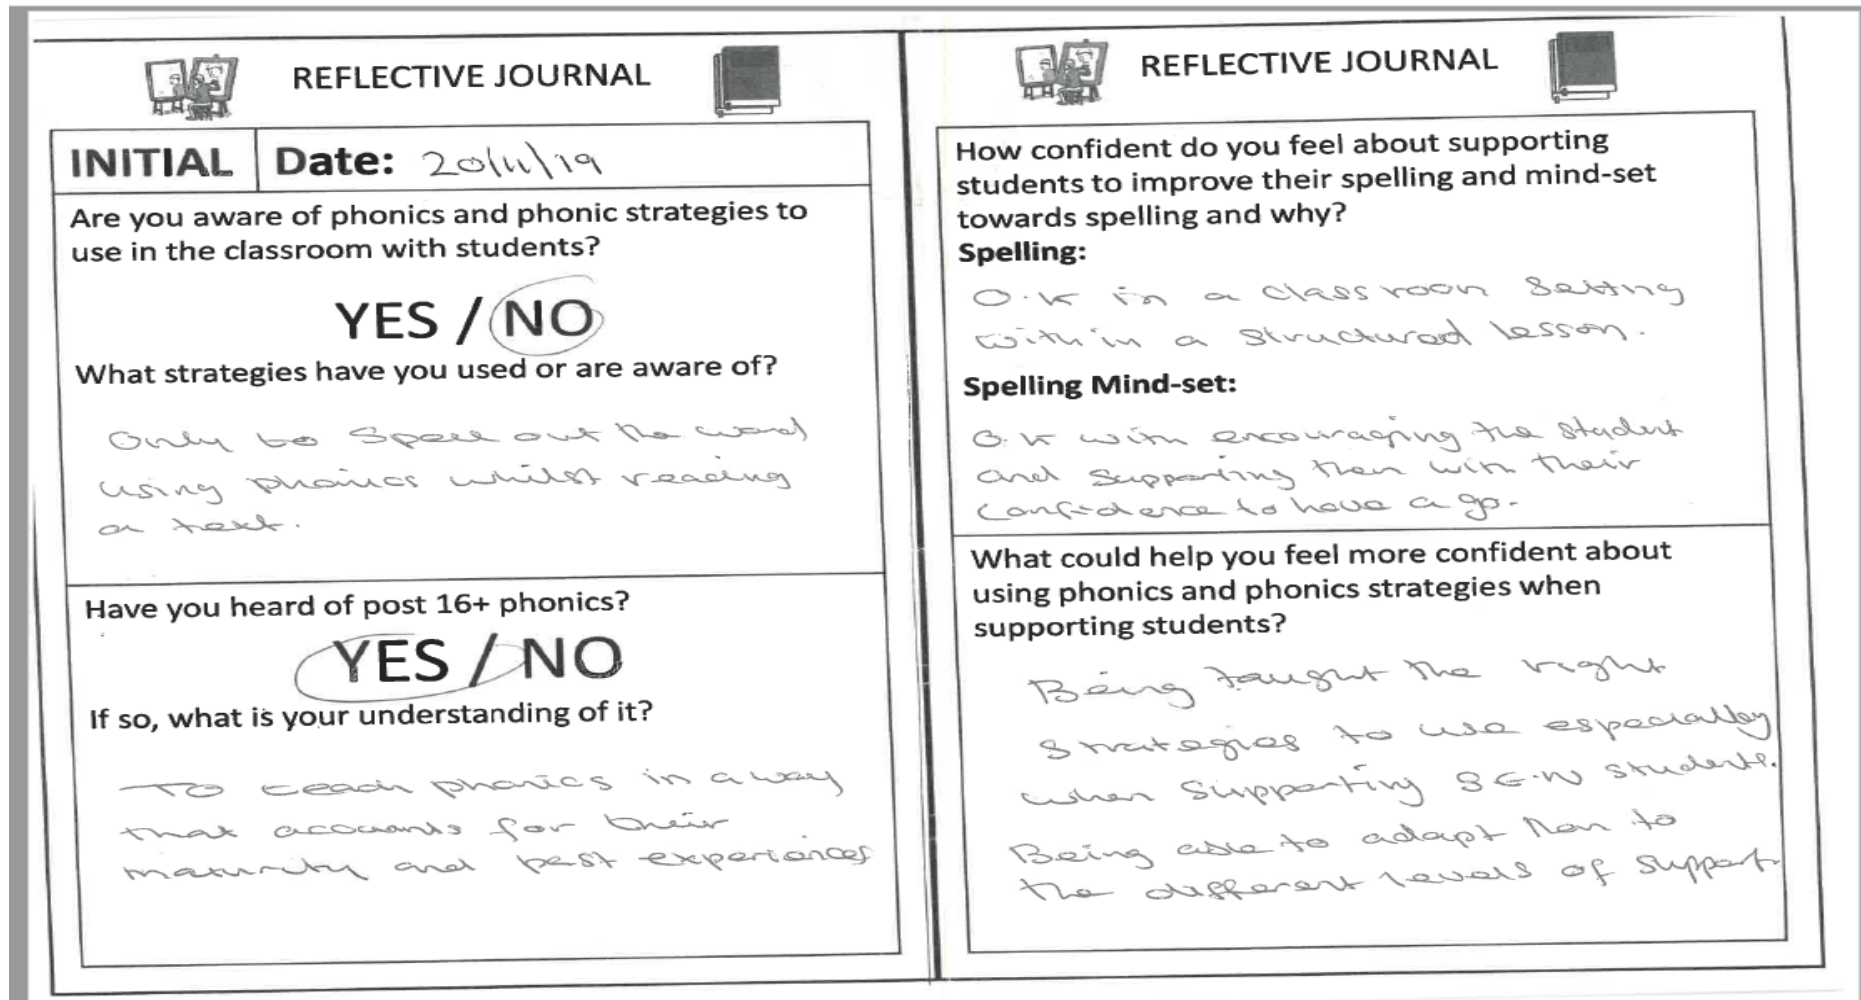 REFLECTIVE JOURNAL
INITIAL Date: 20/11/19
Are you aware of phonics and phonic strategies to
use in the classroom with students?
YES / NO
What strategies have you used or are aware of?
Only to spell out the word
using phonics whilst reading
a text.
Have you heard of post 16+ phonics?
YES / NO
If so, what is your understanding of it?
To teach phonics in a way
that accounts for their
maturity and past experiences
REFLECTIVE JOURNAL
How confident do you feel about supporting
students to improve their spelling and mind-set
towards spelling and why?
Spelling:
O.K in a classroom setting
within a structured lesson.
Spelling Mind-set:
O.K with encouraging the student
and supporting them with their
confidence to have a go.
What could help you feel more confident about
using phonics and phonics strategies when
supporting students?
Being taught the right
strategies to use especially
when supporting S.E.N students.
Being able to adapt them to
the different levels of support